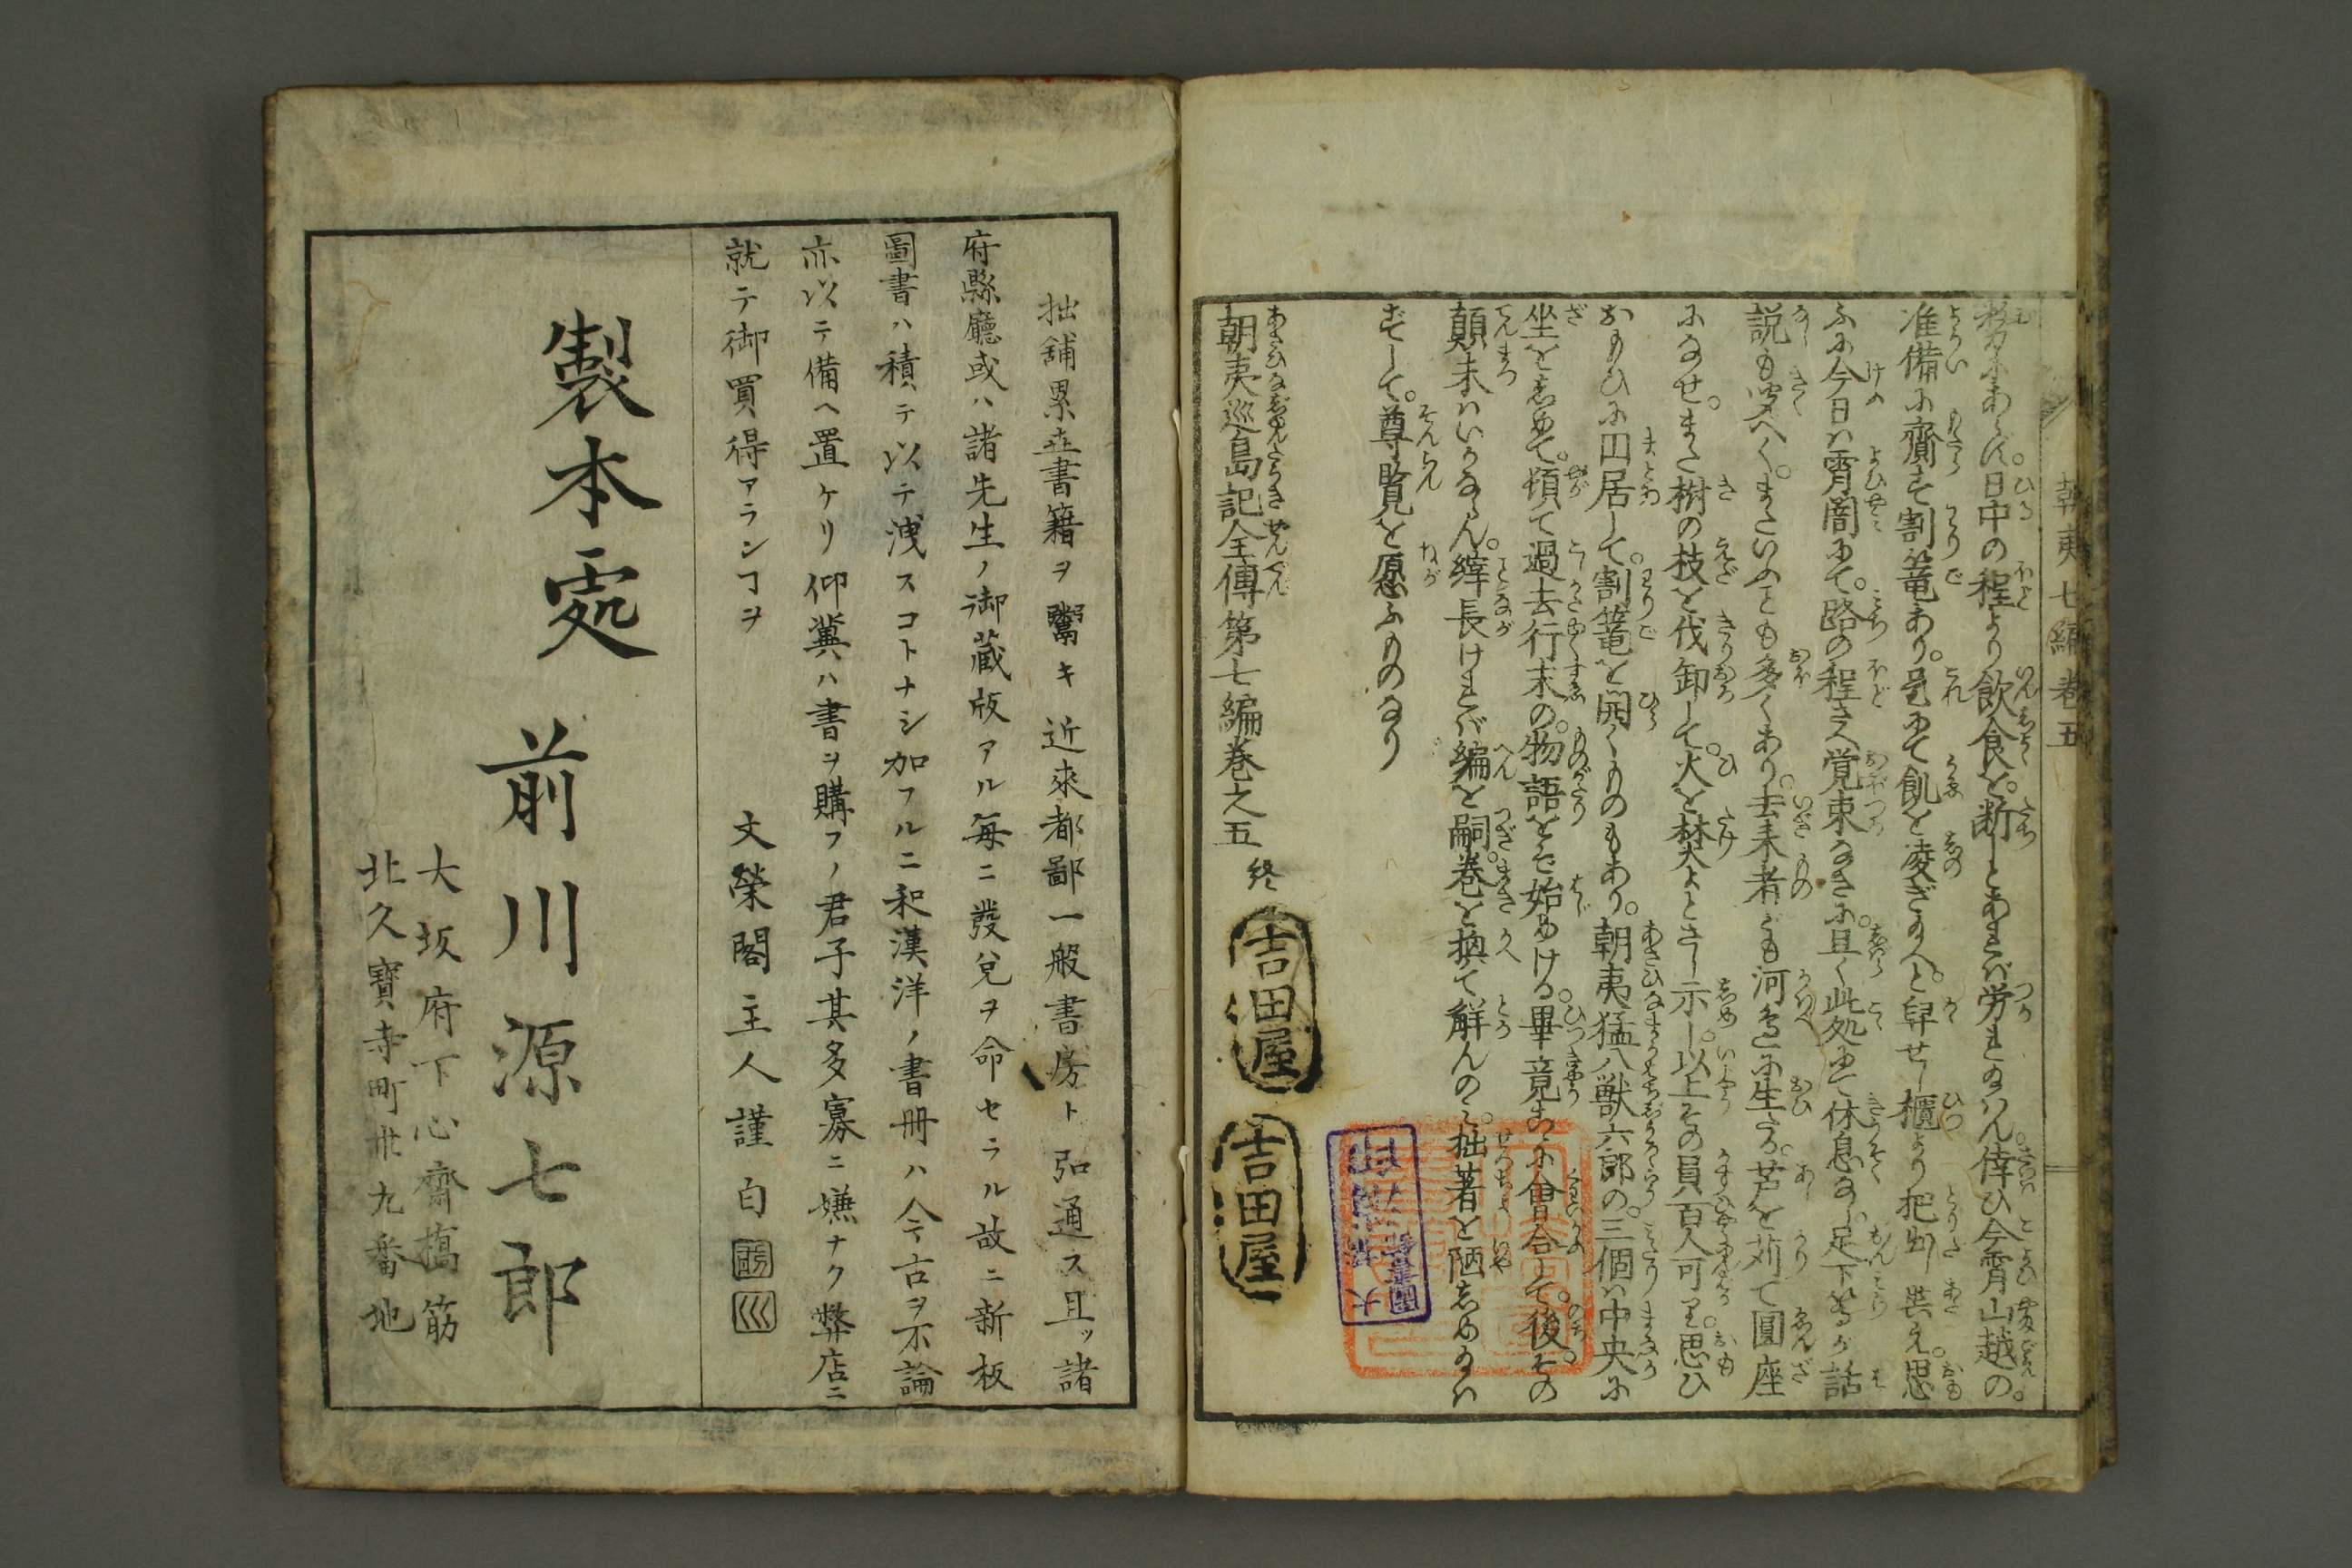 朝夷七編巻五
日中の程より飲食を。断しとあれば労れのはん。倖ひ今宵山越の。
准備に齎す割篭あり。是にて飢を凌ぎ給へと。舁せし櫃より把出し興え。思
ふに今日は宵闇にて。路の程さへ覚束なきに。且く此処にて休息なし。足下等が話
説も聞べく。またいふことも多くあり。去来者ども河辺に生たる。芦を苅て圓座
になせ。また樹の枝を伐卸して。火を焚犬よとさし示し。以上その員百人可り。思ひ
おもひに円居して。割篭を開くものもあり。朝夷猛八獣六郎の。三個は中央に
坐をしめて。頓て過去行末の。物語をぞ始めける。畢竟こゝに會合して。後その
顛末はいかならん。縡長ければ編を嗣。巻を換て解んのミ。拙著を陋しめ給は
ずして。尊覧を愿ふものなり
朝夷巡島記全傳第七編巻之五 終
吉田屋
吉田屋
拙舗累世書籍ヲ鬻キ近來都鄙一般書房ト弘通ス且ッ諸
府縣廳或ハ諸先生ノ御藏版アル毎ニ發兌ヲ命セラル故ニ新板
圖書ハ積テ以テ洩スコトナシ加フルニ和漢洋ノ書冊ハ今古ヲ不論
亦以テ備ヘ置ケリ仰冀ハ書ヲ購フノ君子其多寡ニ嫌ナク弊店ニ
就テ御買得アランヿヲ
文榮閣主人謹白
製本處 前川源七郎
大坂府下心齋橋筋
北久寶寺町卅九番地